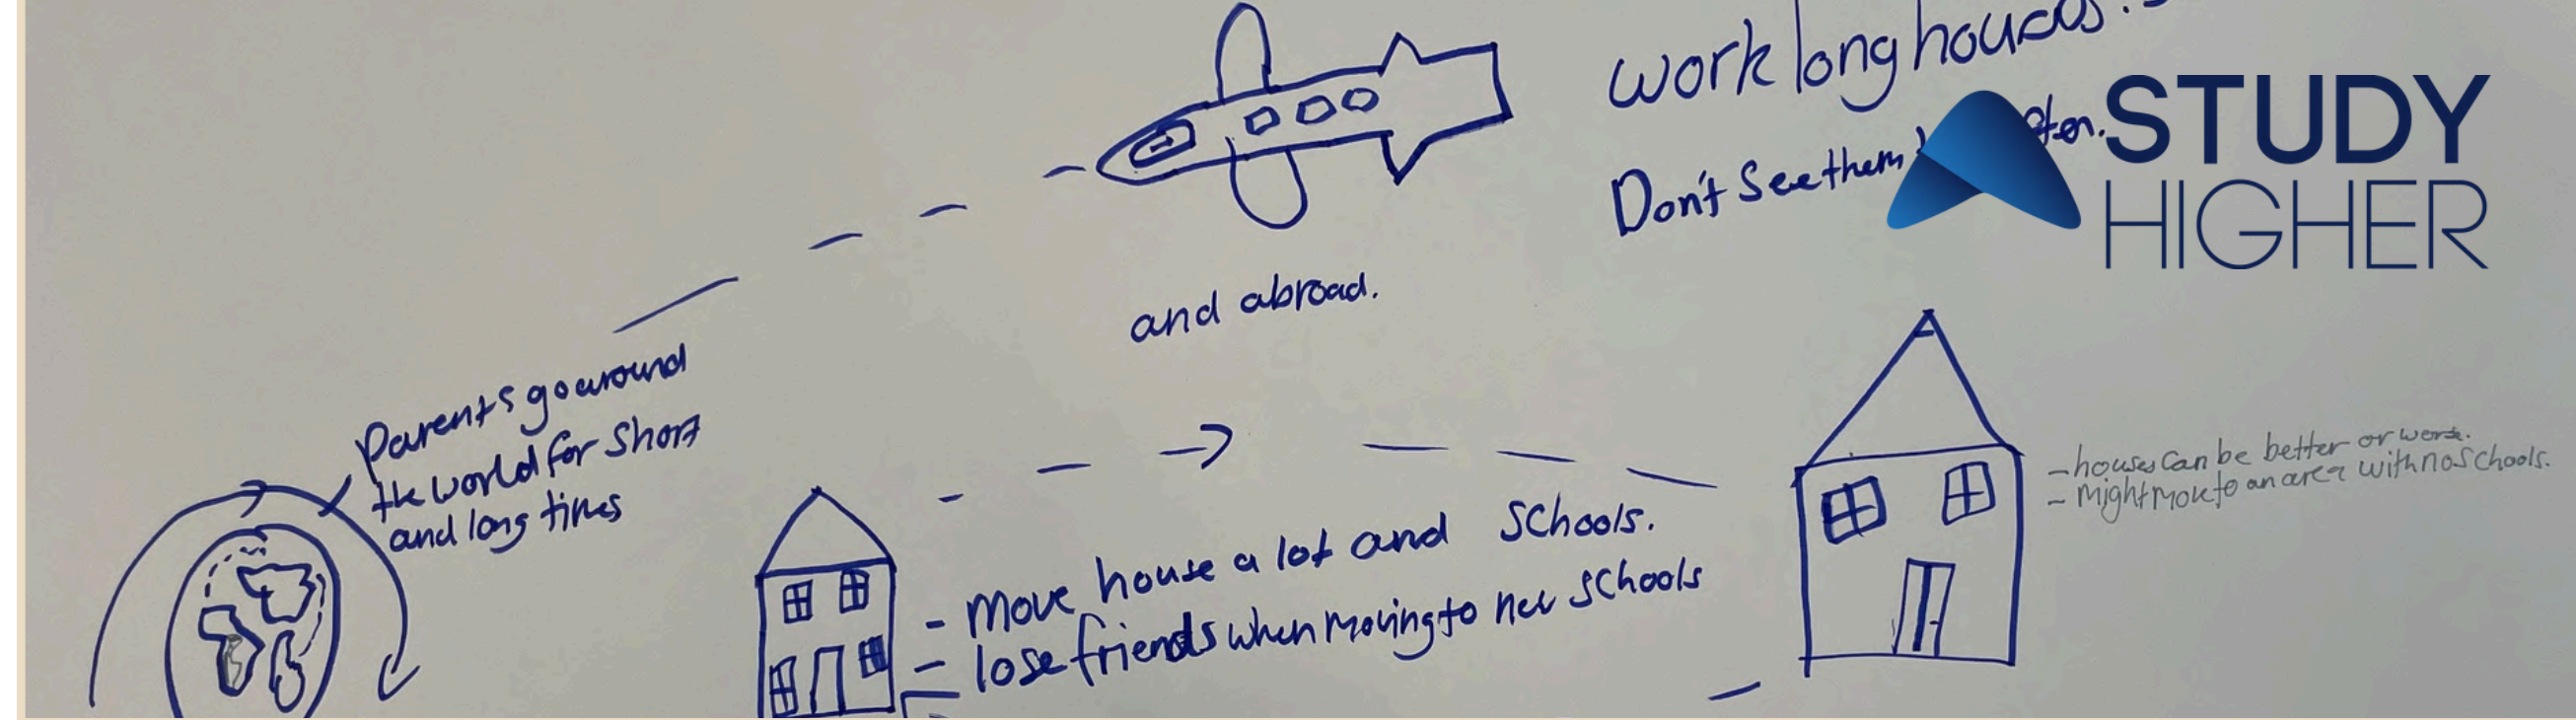 work long hours.
Don't see them often.
STUDY
HIGHER
and abroad.
Parents go around
the world for short
and long times
- houses can be better or worse.
- might move to an area with no schools.
- move house a lot and schools.
- lose friends when moving to new schools